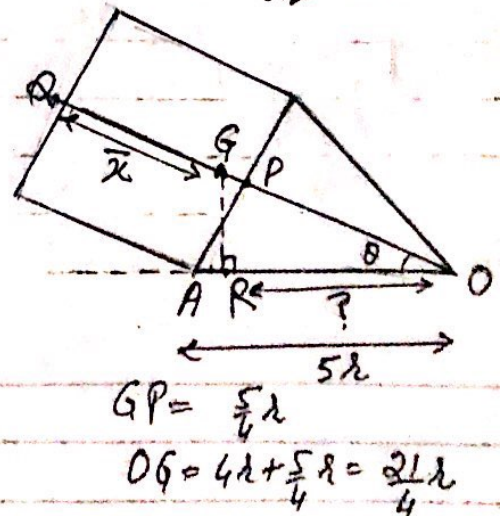 Q
G
x̄
P
θ
A
R
?
O
5r
GP = 5/4 r
OG = 4r + 5/4 r = 21/4 r